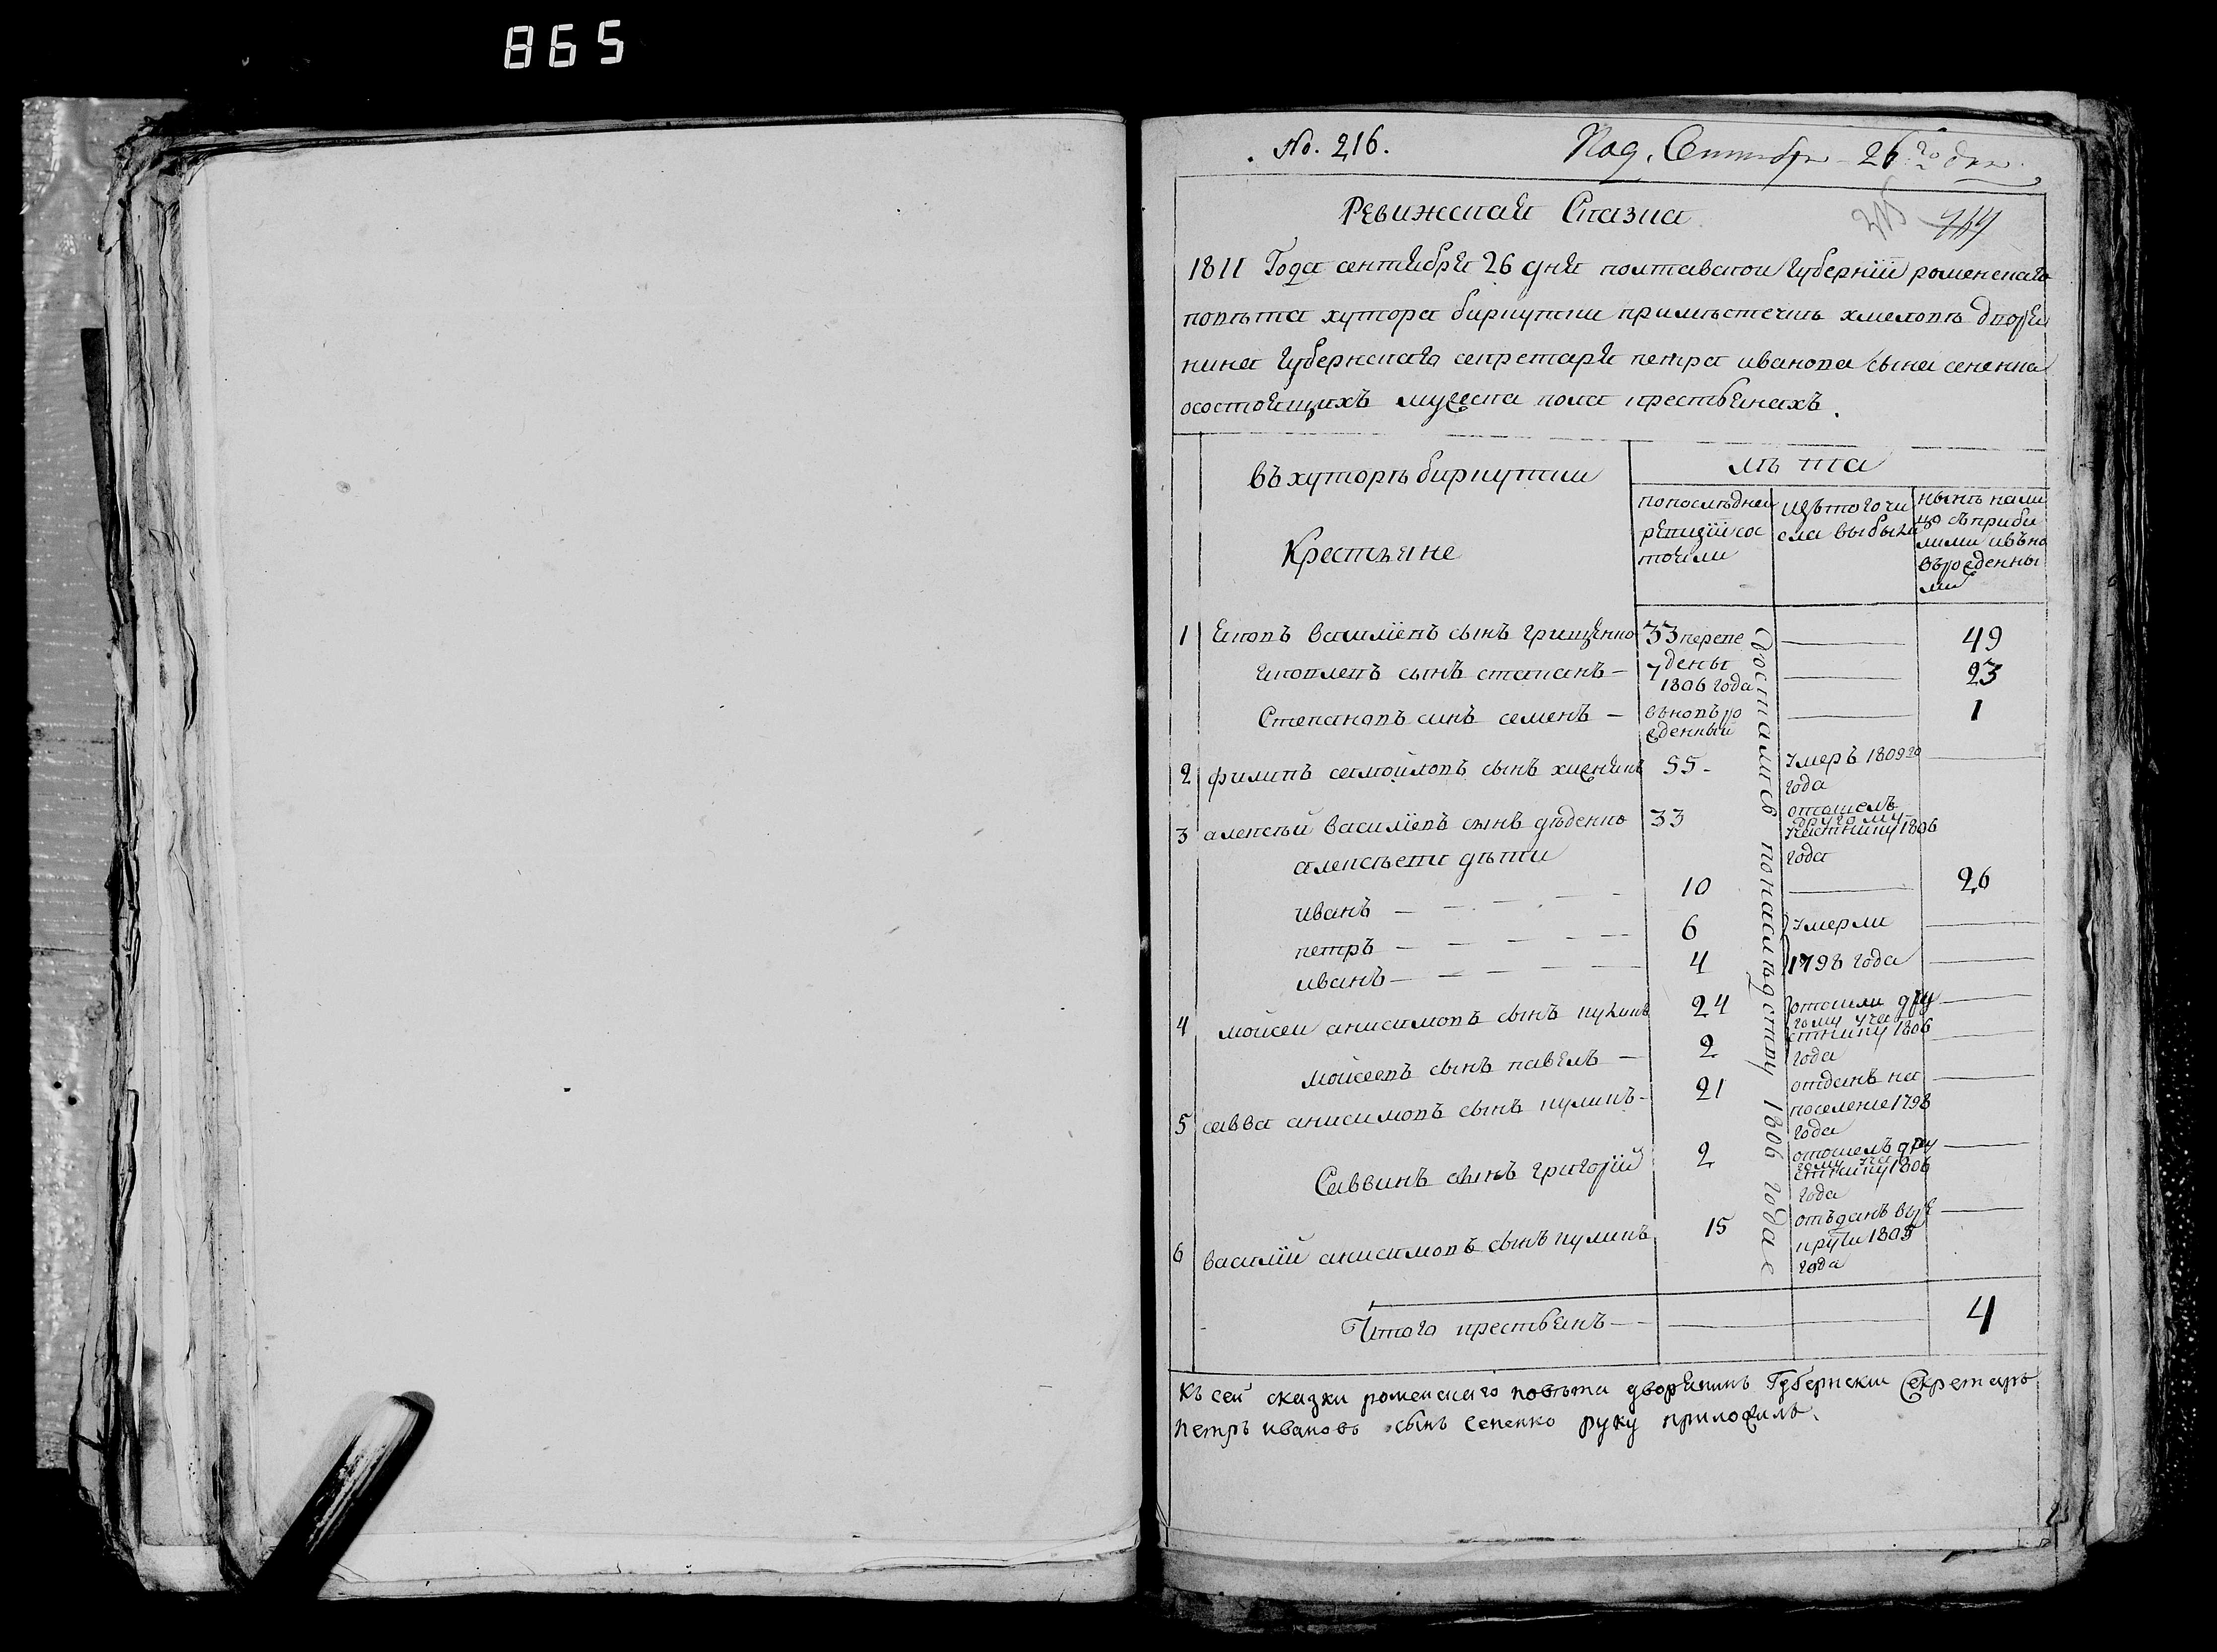 865
No. 216.
Под. Сентября 26го дня
Ревижская Сказка
1811 Года сентября 26 дня полтавской губернїи роменскаго
повѣта хутора биркутки при мѣстечкѣ хмеловѣ дворя
нина губернскаго секретаря петра иванова сына сененка
осостоящихъ мужеска пола крестьянахъ.
въ хуторѣ биркутки
Крестьяне
лѣта
попослѣдней
ревизїи сос
тояли
изътогочи
сла выбыло
нынѣ нали
цо съприбы
лыми ивъно
въ рожденны
ми
1 Яковъ василїевъ сынъ грищенко 33 переве 49
яковлевъ сынъ степанъ — 7 дены 23
1806 года
Степановъ синъ семенъ — вьновь ро 1
жденный
2 филипъ самойловъ сынъ хижнякъ 55 - Умеръ 1809го
года
3 алексѣй василїевъ сынъ дѣденко 33 отошелъ
другому
участнику 1806
года
алексѣеви дѣти
иванъ 10 26
петръ 6 Умерли
иванъ 4 1798 года
4 мойсеи анисимовъ сынъ куликъ 24 отошли дру
гому уча
стнику 1806
года
мойсеевъ сынъ павелъ — 2
5 савва анисимовъ сынъ куликъ - 21 отданъ на
поселение 1798
года
Саввинъ сынъ григорїй 2 отошелъ дру
гому уча
стнику 1806
года
6 василїй анисимовъ сынъ куликъ 15 отъданъ врѣ
круты 1805
года
досталися понаслѣдству 1806 года
Итого крестьянъ — 4
Къ сей сказки роменскаго повѣта дворянинъ Губернски Секретарь
Петръ Ивановъ сынъ Сененко руку приложилъ.